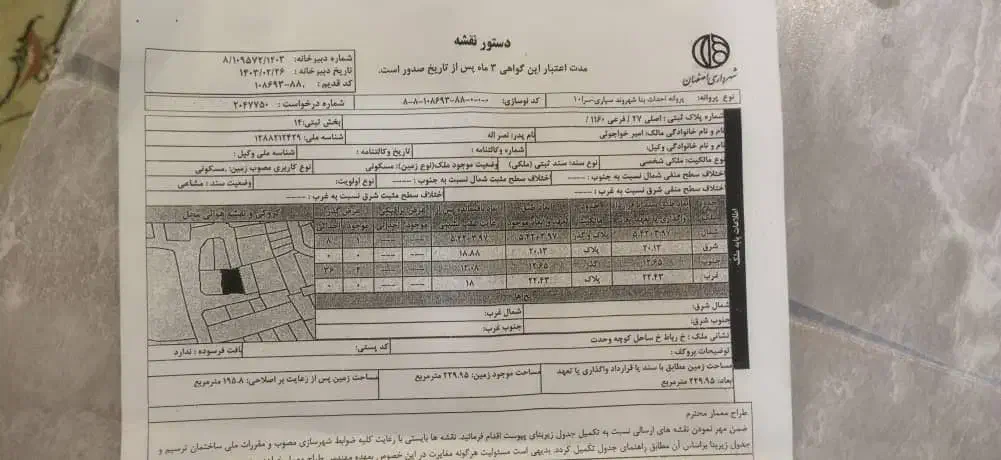 دستور نقشه
مدت اعتبار این گواهی ۳ ماه پس از تاریخ صدور است.
شهرداری اصفهان
شماره دبیرخانه: ۸/۱۰۹۵۷۲/۱۴۰۳
تاریخ دبیرخانه: ۱۴۰۳/۰۲/۲۶
کد قدیم: ۱۰۸۶۹۳-۸۸
نوع پروانه: پروانه احداث بنا شهروند سپاری-سرا۱۰
کد نوسازی: ۸-۸-۱۰۸۶۹۳-۸۸-۰-۰-۰
شماره درخواست: ۲۰۴۷۷۵۰
شماره پلاک ثبتی: اصلی ۲۷/ فرعی ۱۱۶۰/
بخش ثبتی: ۱۴
نام و نام خانوادگی مالک: امیر خواجوئی
نام پدر: نصر اله
شناسه ملی: ۱۲۸۸۲۱۲۴۲۹
نام و نام خانوادگی وکیل:
شماره وکالتنامه:
تاریخ وکالتنامه:
شناسه ملی وکیل:
نوع مالکیت: ملکی شخصی
نوع سند: سند ثبتی (ملکی)
وضعیت موجود ملک(نوع زمین): مسکونی
نوع کاربری مصوب زمین: مسکونی
اختلاف سطح منفی شمال نسبت به جنوب: ------
اختلاف سطح مثبت شمال نسبت به جنوب: ------
نوع اولویت: ------
وضعیت سند: مشاعی
اختلاف سطح منفی شرق نسبت به غرب: ------
اختلاف سطح مثبت شرق نسبت به غرب: ------
اطلاعات پایه ملک
کروکی و نقشه هوائی محل
شمال ۵.۴۲۰۳.۹۷ ۵.۴۲۰۳.۹۷ پلاک و گذر ۵.۴۲۰۳.۹۷
شرق ۲۰.۱۳ ۲۰.۱۳ پلاک ۱۸.۸۸ ---- ---- ۰ ۰
جنوب ۱۲.۶۵ ۱۲.۶۵ گذر ۱۲.۰۸
غرب ۲۲.۴۳ ۲۲.۴۳ پلاک ۱۸ ---- ---- ۰ ۰
پخ ها
شمال شرق:
شمال غرب:
جنوب شرق:
جنوب غرب:
نشانی ملک: خ رباط خ ساحل کوچه وحدت
کد پستی:
بافت فرسوده: ندارد
توضیحات بروکف:
مساحت زمین مطابق با سند یا قرارداد واگذاری یا تعهد ابعاد: ۲۲۹.۹۵ مترمربع
مساحت موجود زمین: ۲۲۹.۹۵ مترمربع
مساحت زمین پس از رعایت بر اصلاحی: ۱۹۵.۸ مترمربع
طراح معمار محترم
ضمن مهر نمودن نقشه های ارسالی نسبت به تکمیل جدول زیربنای پیوست اقدام فرمائید. نقشه ها بایستی با رعایت کلیه ضوابط شهرسازی مصوب و مقررات ملی ساختمان ترسیم و
جدول زیربنا براساس آن مطابق راهنمای جدول تکمیل گردد. بدیهی است مسئولیت هرگونه مغایرت در این خصوص بعهده مهندس طراح